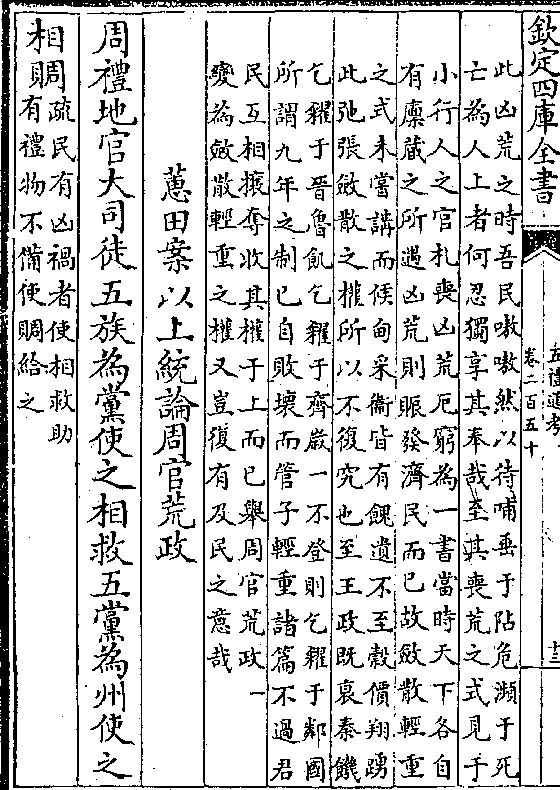 欽定四庫全書
五禮通考
卷二百五十
十三
此凶荒之時吾民嗷嗷然以待哺垂于阽危瀕于死
亡為人上者何忍獨享其奉哉至其喪荒之式見于
小行人之官札喪凶荒厄窮為一書當時天下各自
有廩藏之所遇凶荒則賑發濟民而已故斂散輕重
之式未嘗講而侯甸采衛皆有餽遺不至穀價翔踴
此弛張斂散之權所以不復究也至王政既衰秦饑
乞糴于晉魯飢乞糴于齊嵗一不登則乞糴于鄰國
所謂九年之制已自敗壞而管子輕重諸篇不過君
民互相攘奪收其權于上而已舉周官荒政一
變為斂散輕重之權又豈復有及民之意哉
蕙田案以上統論周官荒政
周禮地官大司徒五族為黨使之相救五黨為州使之
相賙
疏民有凶禍者使相救助
有禮物不備使賙給之